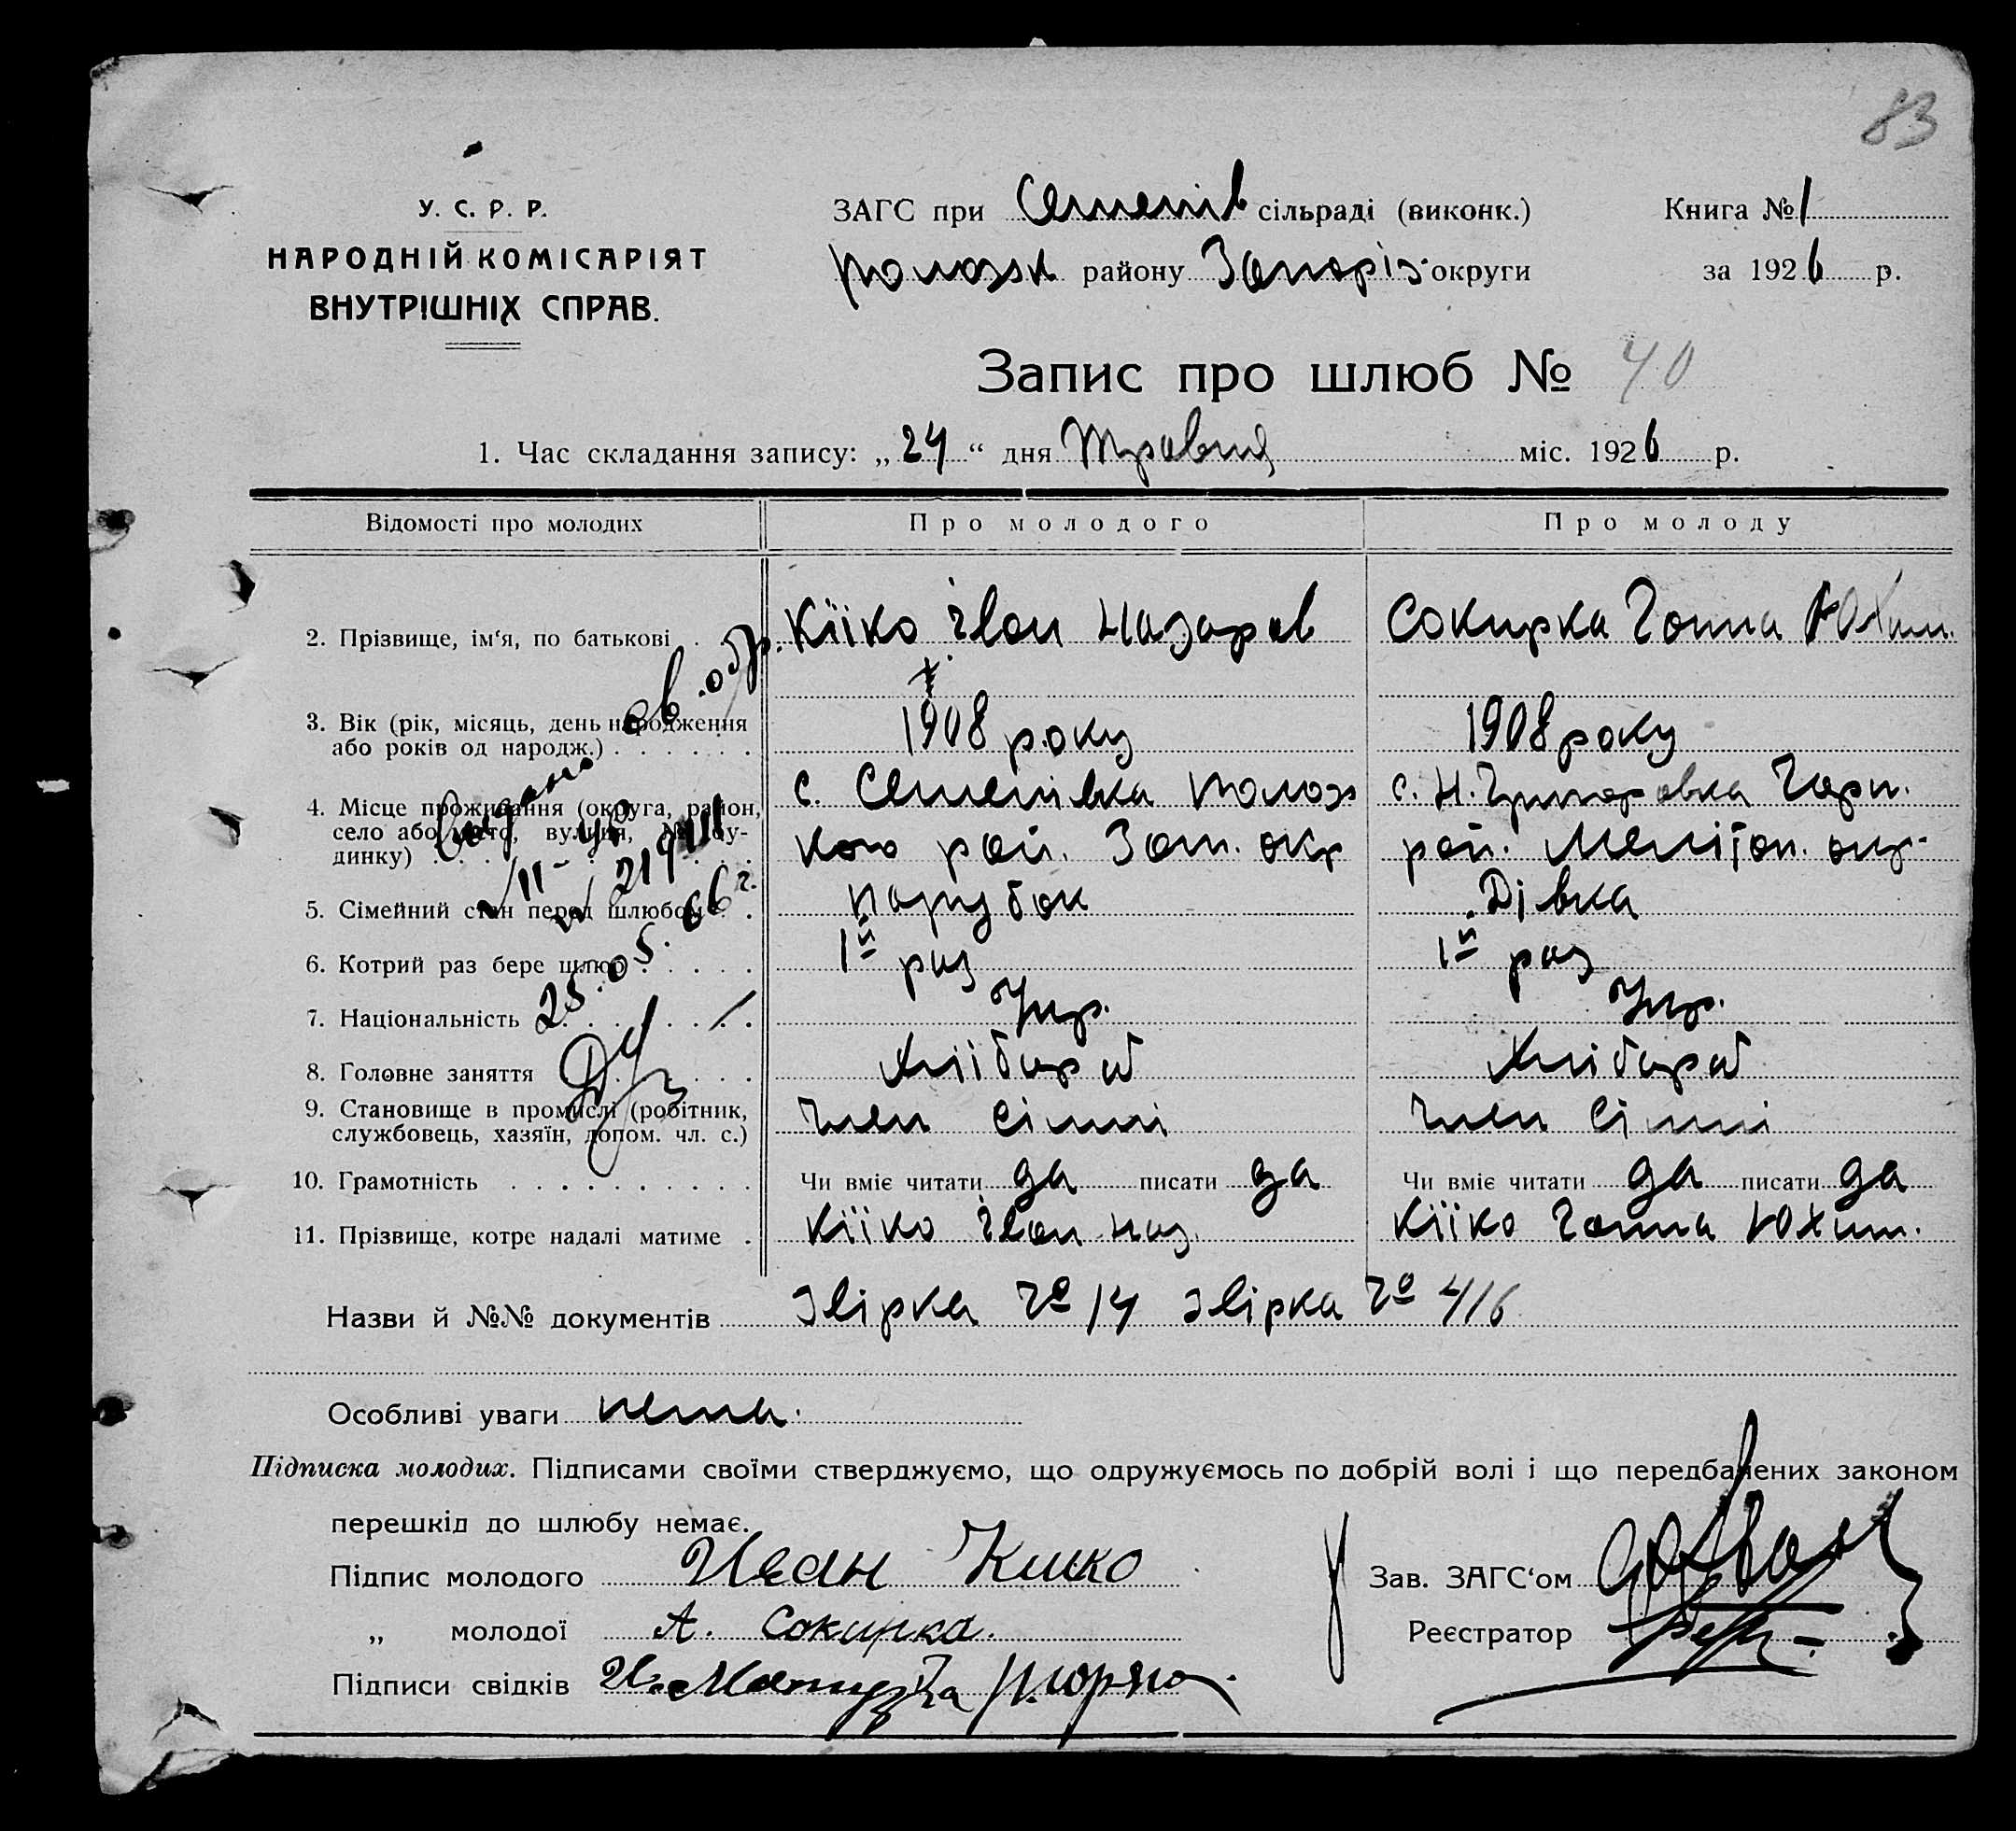 83
У. С. Р. Р.
НАРОДНІЙ КОМІСАРІЯТ
ВНУТРІШНІХ СПРАВ.
ЗАГС при Семенів сільраді (виконк.)
Полозк району Запоріз. округи
Книга № 1
за 1926 р.
Запис про шлюб № 40
1. Час складання запису: „24“ дня Травня міс. 1926 р.
Відомості про молодих Про молодого Про молоду
2. Прізвище, ім‘я, по батькові Кіїко Іван Назаров Сокирка Ганна Юхим.
3. Вік (рік, місяць, день народження
або років од народж.) 1908 року 1908 року
4. Місце проживання (округа, район, с. Семенівка Полоз с. Н. Григоровка Гарп.
село або місто, вулиця, № бу-
динку) кого рай. Зап. окр рай. Мелітоп. окр.
5. Сімейний стан перед шлюбом парубок Дівка
6. Котрий раз бере шлюб 1й раз 1й раз
7. Національність Укр. Укр.
8. Головне заняття Хліібороб Хлібороб
9. Становище в промислі (робітник,
службовець, хазяїн, допом. чл. с.) член сімпі член сімпі
10. Грамотність Чи вміє читати да писати да Чи вміє читати да писати да
11. Прізвище, котре надалі матиме Кіїко Іван Наз. Кіїко Ганна Юхим.
видано св. обр.
21911
25.05.66 г.
Назви й №№ документів Звірка № 14 Звірка № 416
Особливі уваги нема.
Підписка молодих. Підписами своїми стверджуємо, що одружуємось по добрій волі і що передбачених законом
перешкід до шлюбу немає.
Підпис молодого Иван Кийко
„ молодої А. Сокирка.
Підписи свідків
Зав. ЗАГС‘ом
Реєстратор